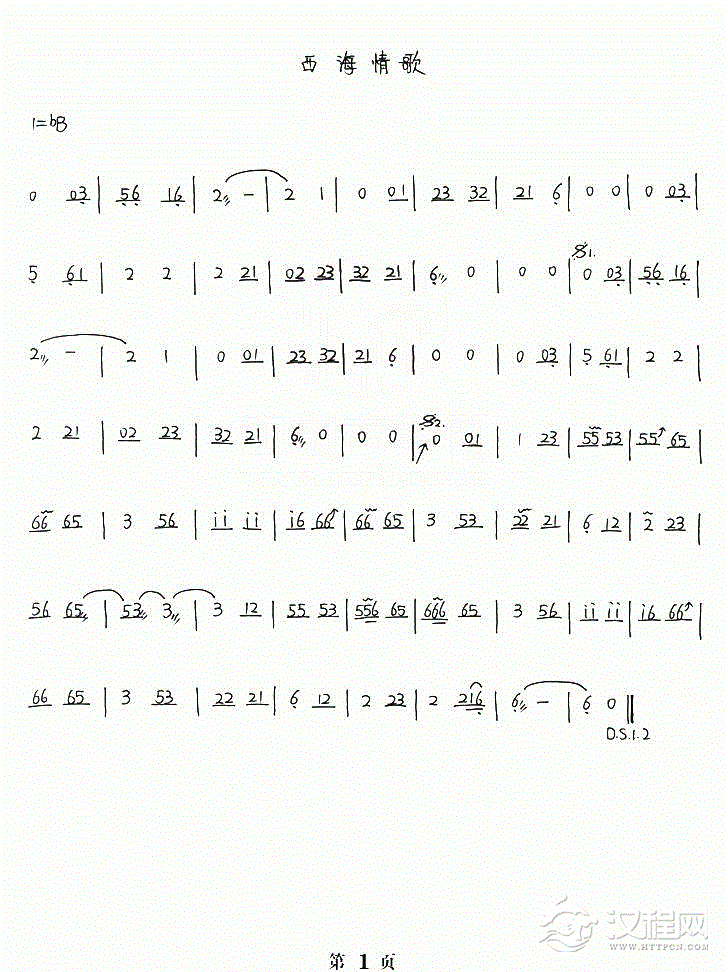 西海情歌
1=bB
0 03 | 56 16 | 2 - | 2 1 | 0 01 | 23 32 | 21 6 | 0 0 | 0 03 |
5 61 | 2 2 | 2 21 | 02 23 | 32 21 | 6 0 | 0 0 | 0 03 | 56 16 |
2 - | 2 1 | 0 01 | 23 32 | 21 6 | 0 0 | 0 03 | 5 61 | 2 2 |
2 21 | 02 23 | 32 21 | 6 0 | 0 0 | 0 01 | 1 23 | 55 53 | 55 65 |
66 65 | 3 56 | ii ii | i6 66 | 66 65 | 3 53 | 22 21 | 6 12 | 2 23 |
56 65 | 53 3 | 3 12 | 55 53 | 556 65 | 666 65 | 3 56 | ii ii | i6 66 |
66 65 | 3 53 | 22 21 | 6 12 | 2 23 | 2 216 | 6 - | 6 0 ‖
D.S.1.2
第 1 页
汉程网
WWW.HTTPCN.COM